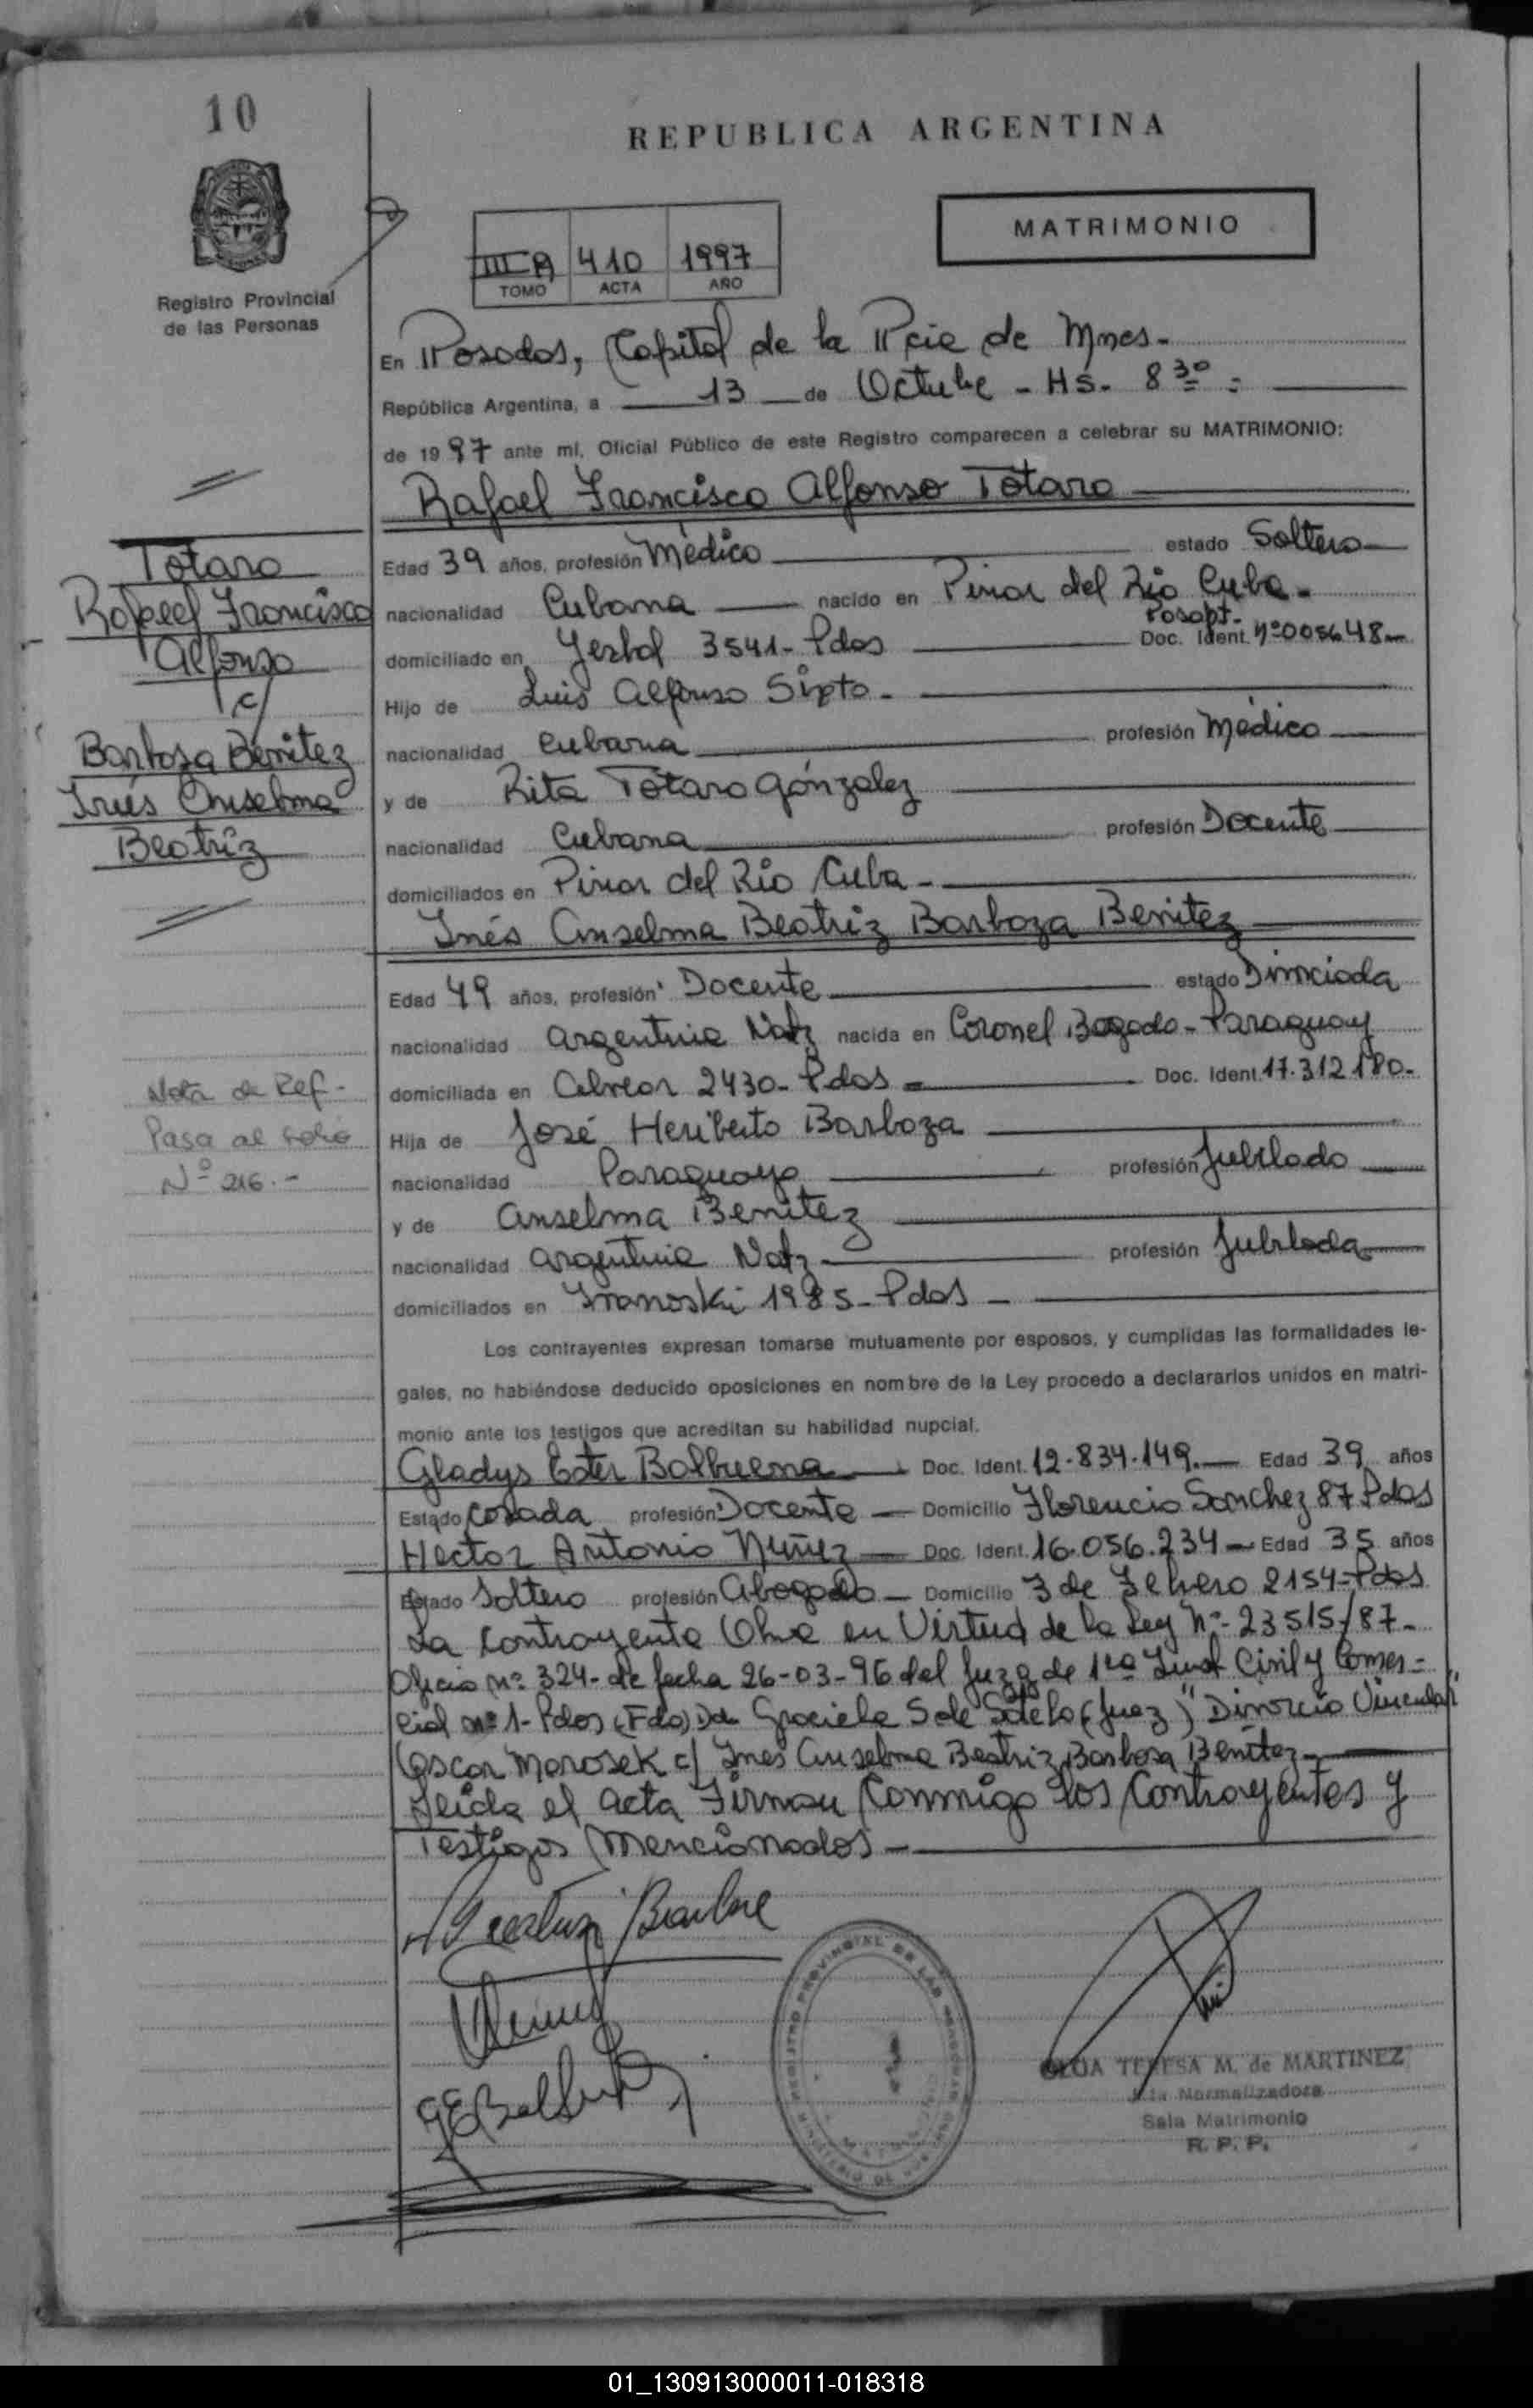 10
REPUBLICA ARGENTINA
MATRIMONIO
III A 410 1997
TOMO ACTA AÑO
Registro Provincial
de las Personas
En Posadas, Capital de la Pcia de Mnes-
República Argentina, a 13 de Octubre - Hs. 8 30 =
de 1997 ante mí, Oficial Público de este Registro comparecen a celebrar su MATRIMONIO:
Rafael Francisco Alfonso Totaro
Totaro
Rafael Francisco
Alfonso
c/
Barboza Benitez
Inés Anselma
Beatriz
Edad 39 años, profesión Médico estado Soltero
nacionalidad Cubana nacido en Pinar del Rio Cuba-
domiciliado en 3541- Pdas Pasapt- Doc. Ident. Nº005648
Hijo de Luis Alfonso Sixto-
nacionalidad Cubana profesión Médico
y de Rita Totaro Gónzalez
nacionalidad Cubana profesión Docente
domiciliados en Pinar del Rio Cuba-
Inés Anselma Beatriz Barboza Benitez
Edad 49 años, profesión Docente estado Divorciada
nacionalidad Argentina Natz nacida en Coronel Bogado- Paraguay
domiciliada en 2430- Pdas Doc. Ident. 17.312.180-
Hija de José Heriberto Barboza
nacionalidad Paraguaya profesión Jubilado
y de Anselma Benitez
nacionalidad Argentina Natz profesión Jubilada
domiciliados en 1985- Pdas-
Nota de Ref-
Pasa al folio
Nº 216.-
Los contrayentes expresan tomarse mutuamente por esposos, y cumplidas las formalidades le-
gales, no habiéndose deducido oposiciones en nombre de la Ley procedo a declararlos unidos en matri-
monio ante los testigos que acreditan su habilidad nupcial.
Gladys Ester Balbuena Doc. Ident. 12.834.149. Edad 39 años
Estado Casada profesión Docente Domicilio Florencio Sanchez 87 Pdas
Hector Antonio Nuñez Doc. Ident. 16.056.234 Edad 35 años
Estado Soltero profesión Abogado Domicilio 3 de Febrero 2154-Pdas
La contrayente Obra en Virtud de la Ley Nº- 23515/87-
Oficio Nº 324- de fecha 26-03-96 del Juzg de 1ra Inst Civil y Comer=
cial Nº 1- Pdas (Fdo) Dra Graciela Sotelo (Juez) "Divorcio Vincular"
Oscar Morosek c/ Ines Anselma Beatriz Barboza Benitez
Leida el acta Firman Conmigo los Contrayentes y
Testigos Mencionados-
REGISTRO PROVINCIAL DE LAS PERSONAS
OLGA TERESA M. de MARTINEZ
Normalizadora
Sala Matrimonio
R. P. P.
01_130913000011-018318